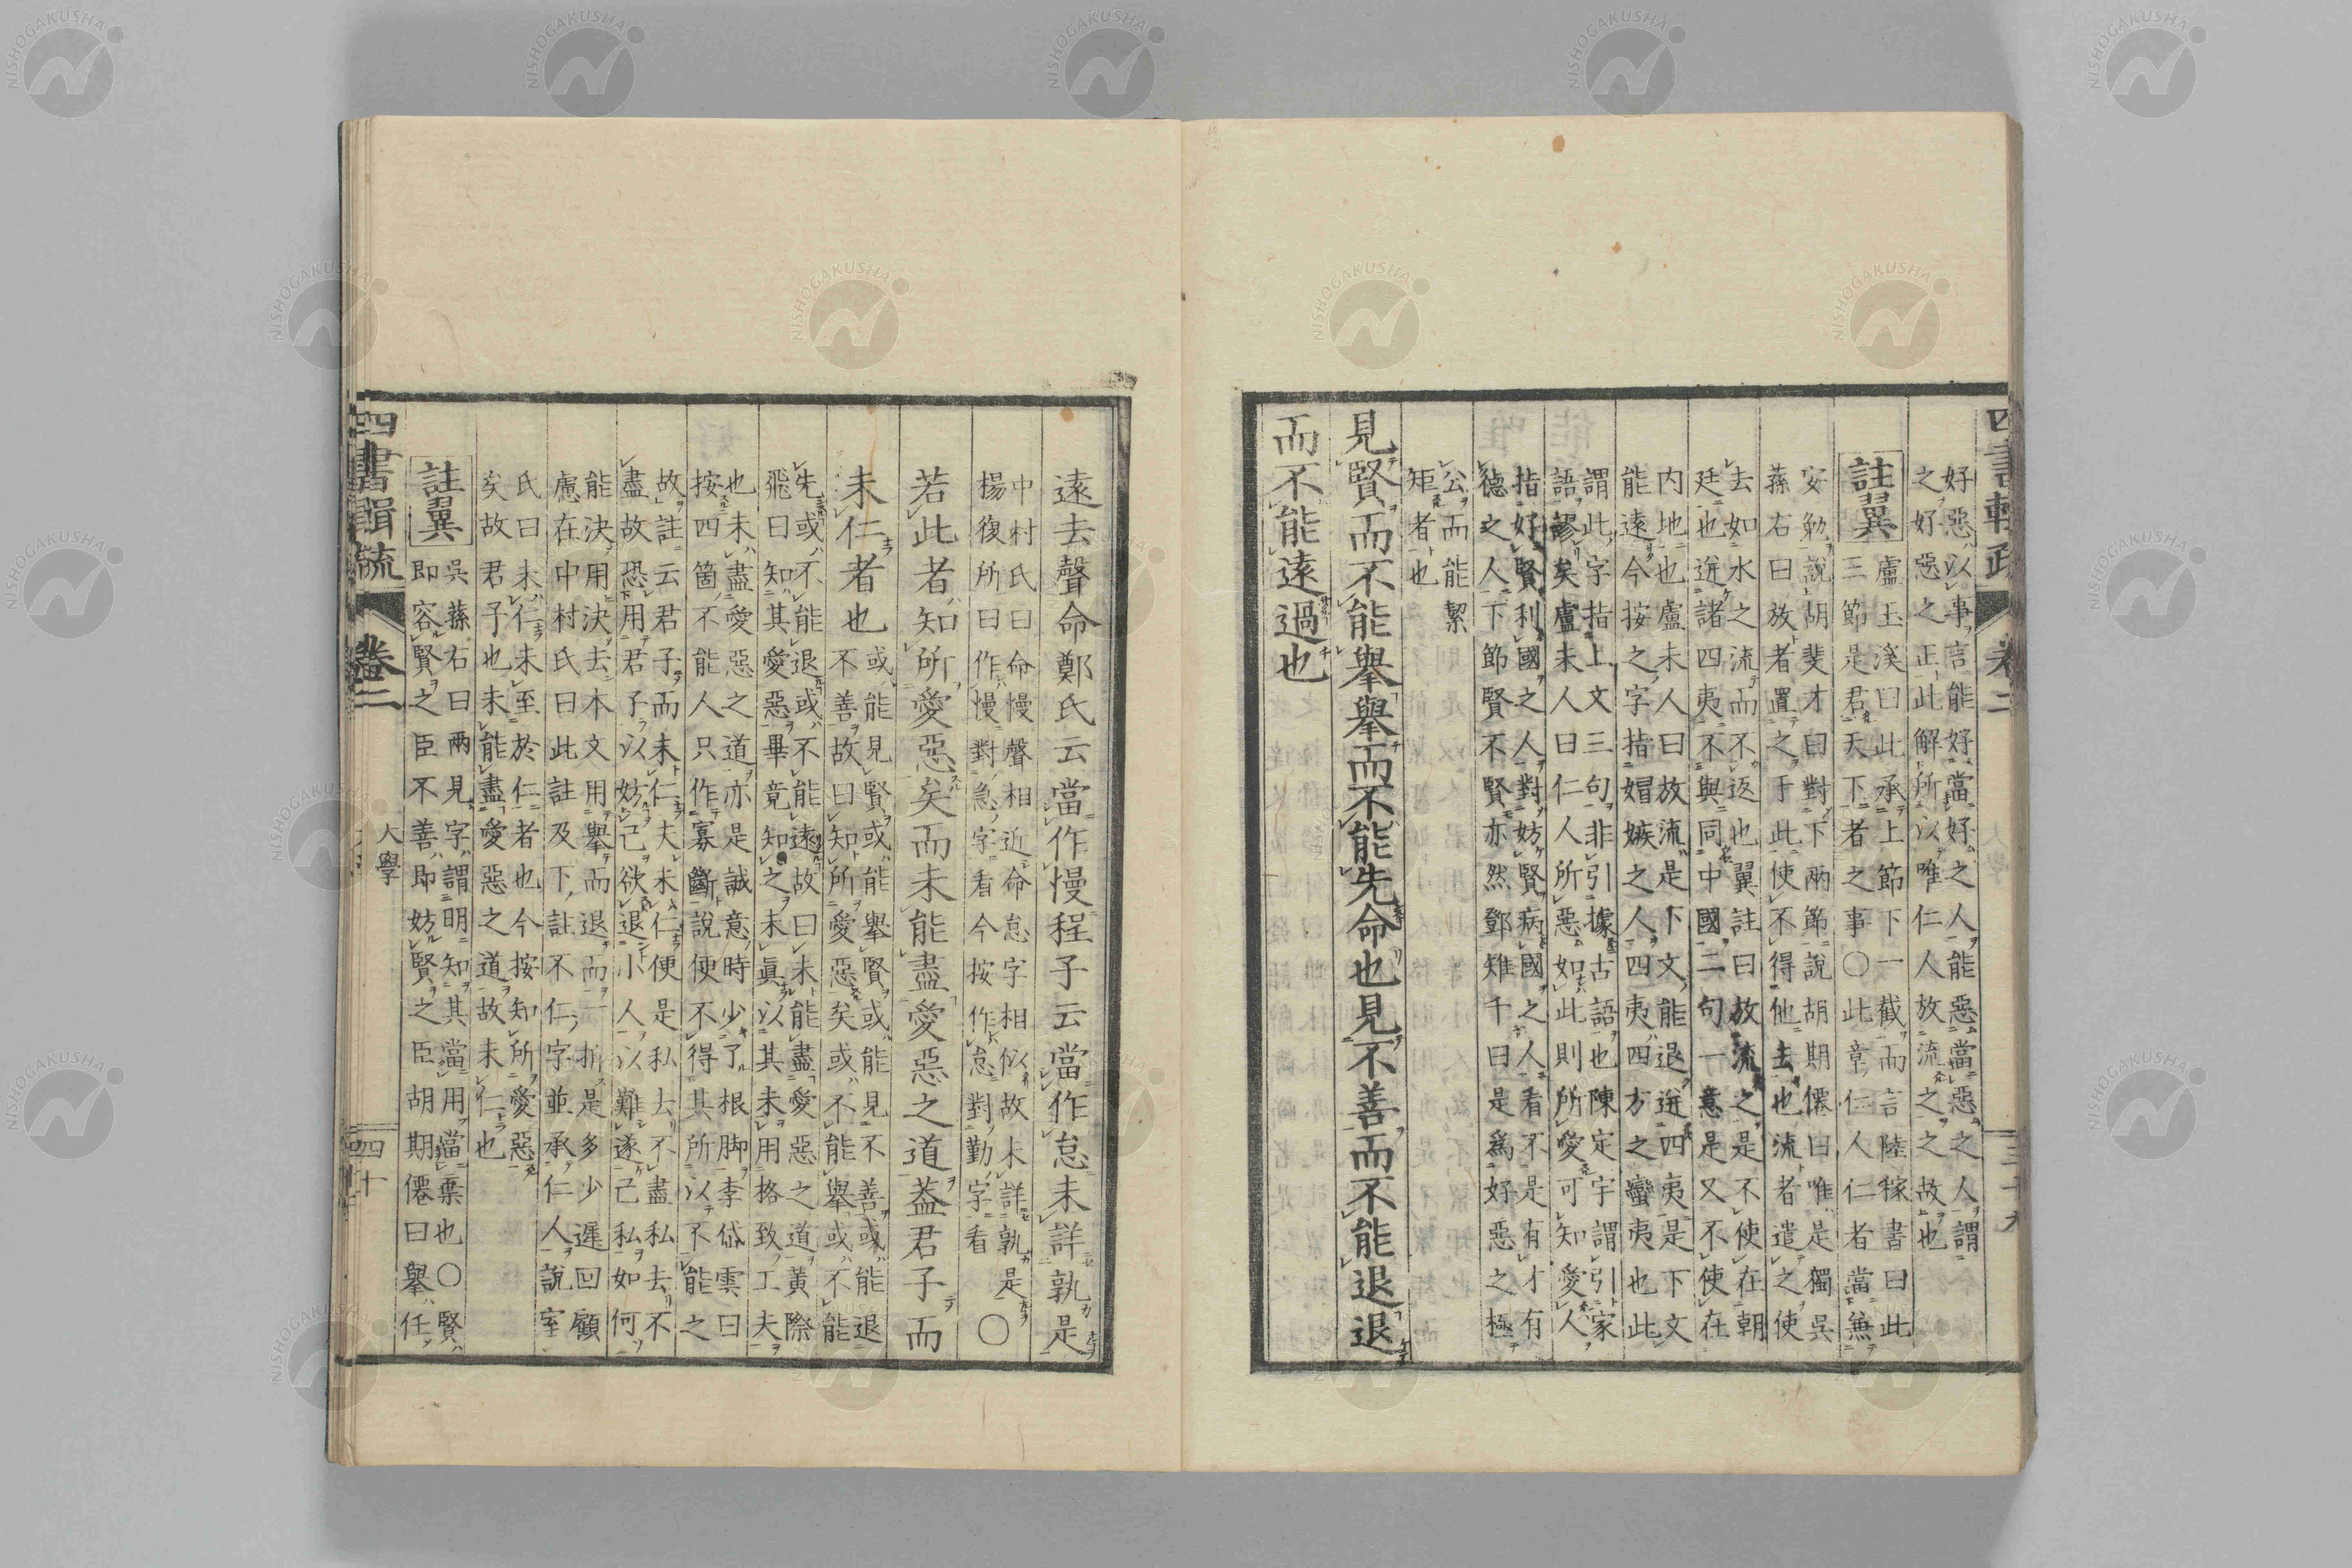 四書輯疏 卷二 三十九
好惡以事言能好當好之人能惡當惡之人謂
之好惡之正此解所以唯仁人放流之之故也
註翼
盧玉溪曰此承上節下一截而言陸稼書曰此
三節是君天下者之事○此章仁人仁者當無
安勉說胡斐才曰對下兩節說胡期僊曰唯是獨吳
蓀右曰放者置之于此使不得他去也流者遣之使
去如水之流而不返也翼註曰放流之是不使在朝
廷也迸諸四夷不與同中國二句一意是又不使在
内地也盧未人曰放流是下文能退迸四夷是下文
能遠今按之字指媢嫉之人四夷四方之蠻夷也此
謂此字指上文三句非引據古語也陳定宇謂引家
語謬矣盧未人曰仁人所惡如此則所愛可知愛人
指好賢利國之人對妨賢病國之人看不是有才有
德之人下節賢不賢亦然鄧雉千曰是爲好惡之極
公而能絜
矩者也
見賢而不能舉舉而不能先命也見不善而不能退退
而不能遠過也
遠去聲命鄭氏云當作慢程子云當作怠未詳孰是
中村氏曰命慢聲相近命怠字相似故未詳孰是○
楊復所曰作慢對急字看今按作怠對勤字看
若此者知所愛惡矣而未能盡愛惡之道葢君子而
未仁者也
或能見賢或能舉賢或能見不善或能退
不善故曰知所愛惡矣或不能舉或不能
先或不能退或不能遠故曰未能盡愛惡之道黃際
飛曰知其愛惡畢竟知之未眞以其未用格致工夫
也未盡愛惡之道亦是誠意時少了根脚李岱雲曰
按四箇不能人只作寡斷說便不得其所以不能之
故註云君子而未仁夫未仁便是私去不盡私去不
盡故恐用君子以妨己欲退小人以難遂己私如何
能決用決去本文用舉而退而一折是多少遲回顧
慮在中村氏曰此註及下註不仁字並承仁人說室
氏曰未仁未至於仁者也今按知所愛惡
矣故君子也未能盡愛惡之道故未仁也
註翼
吳蓀右曰兩見字謂明知其當用當棄也○賢
即容賢之臣不善即妨賢之臣胡期僊曰舉任
四書輯疏 卷二 大學 四十